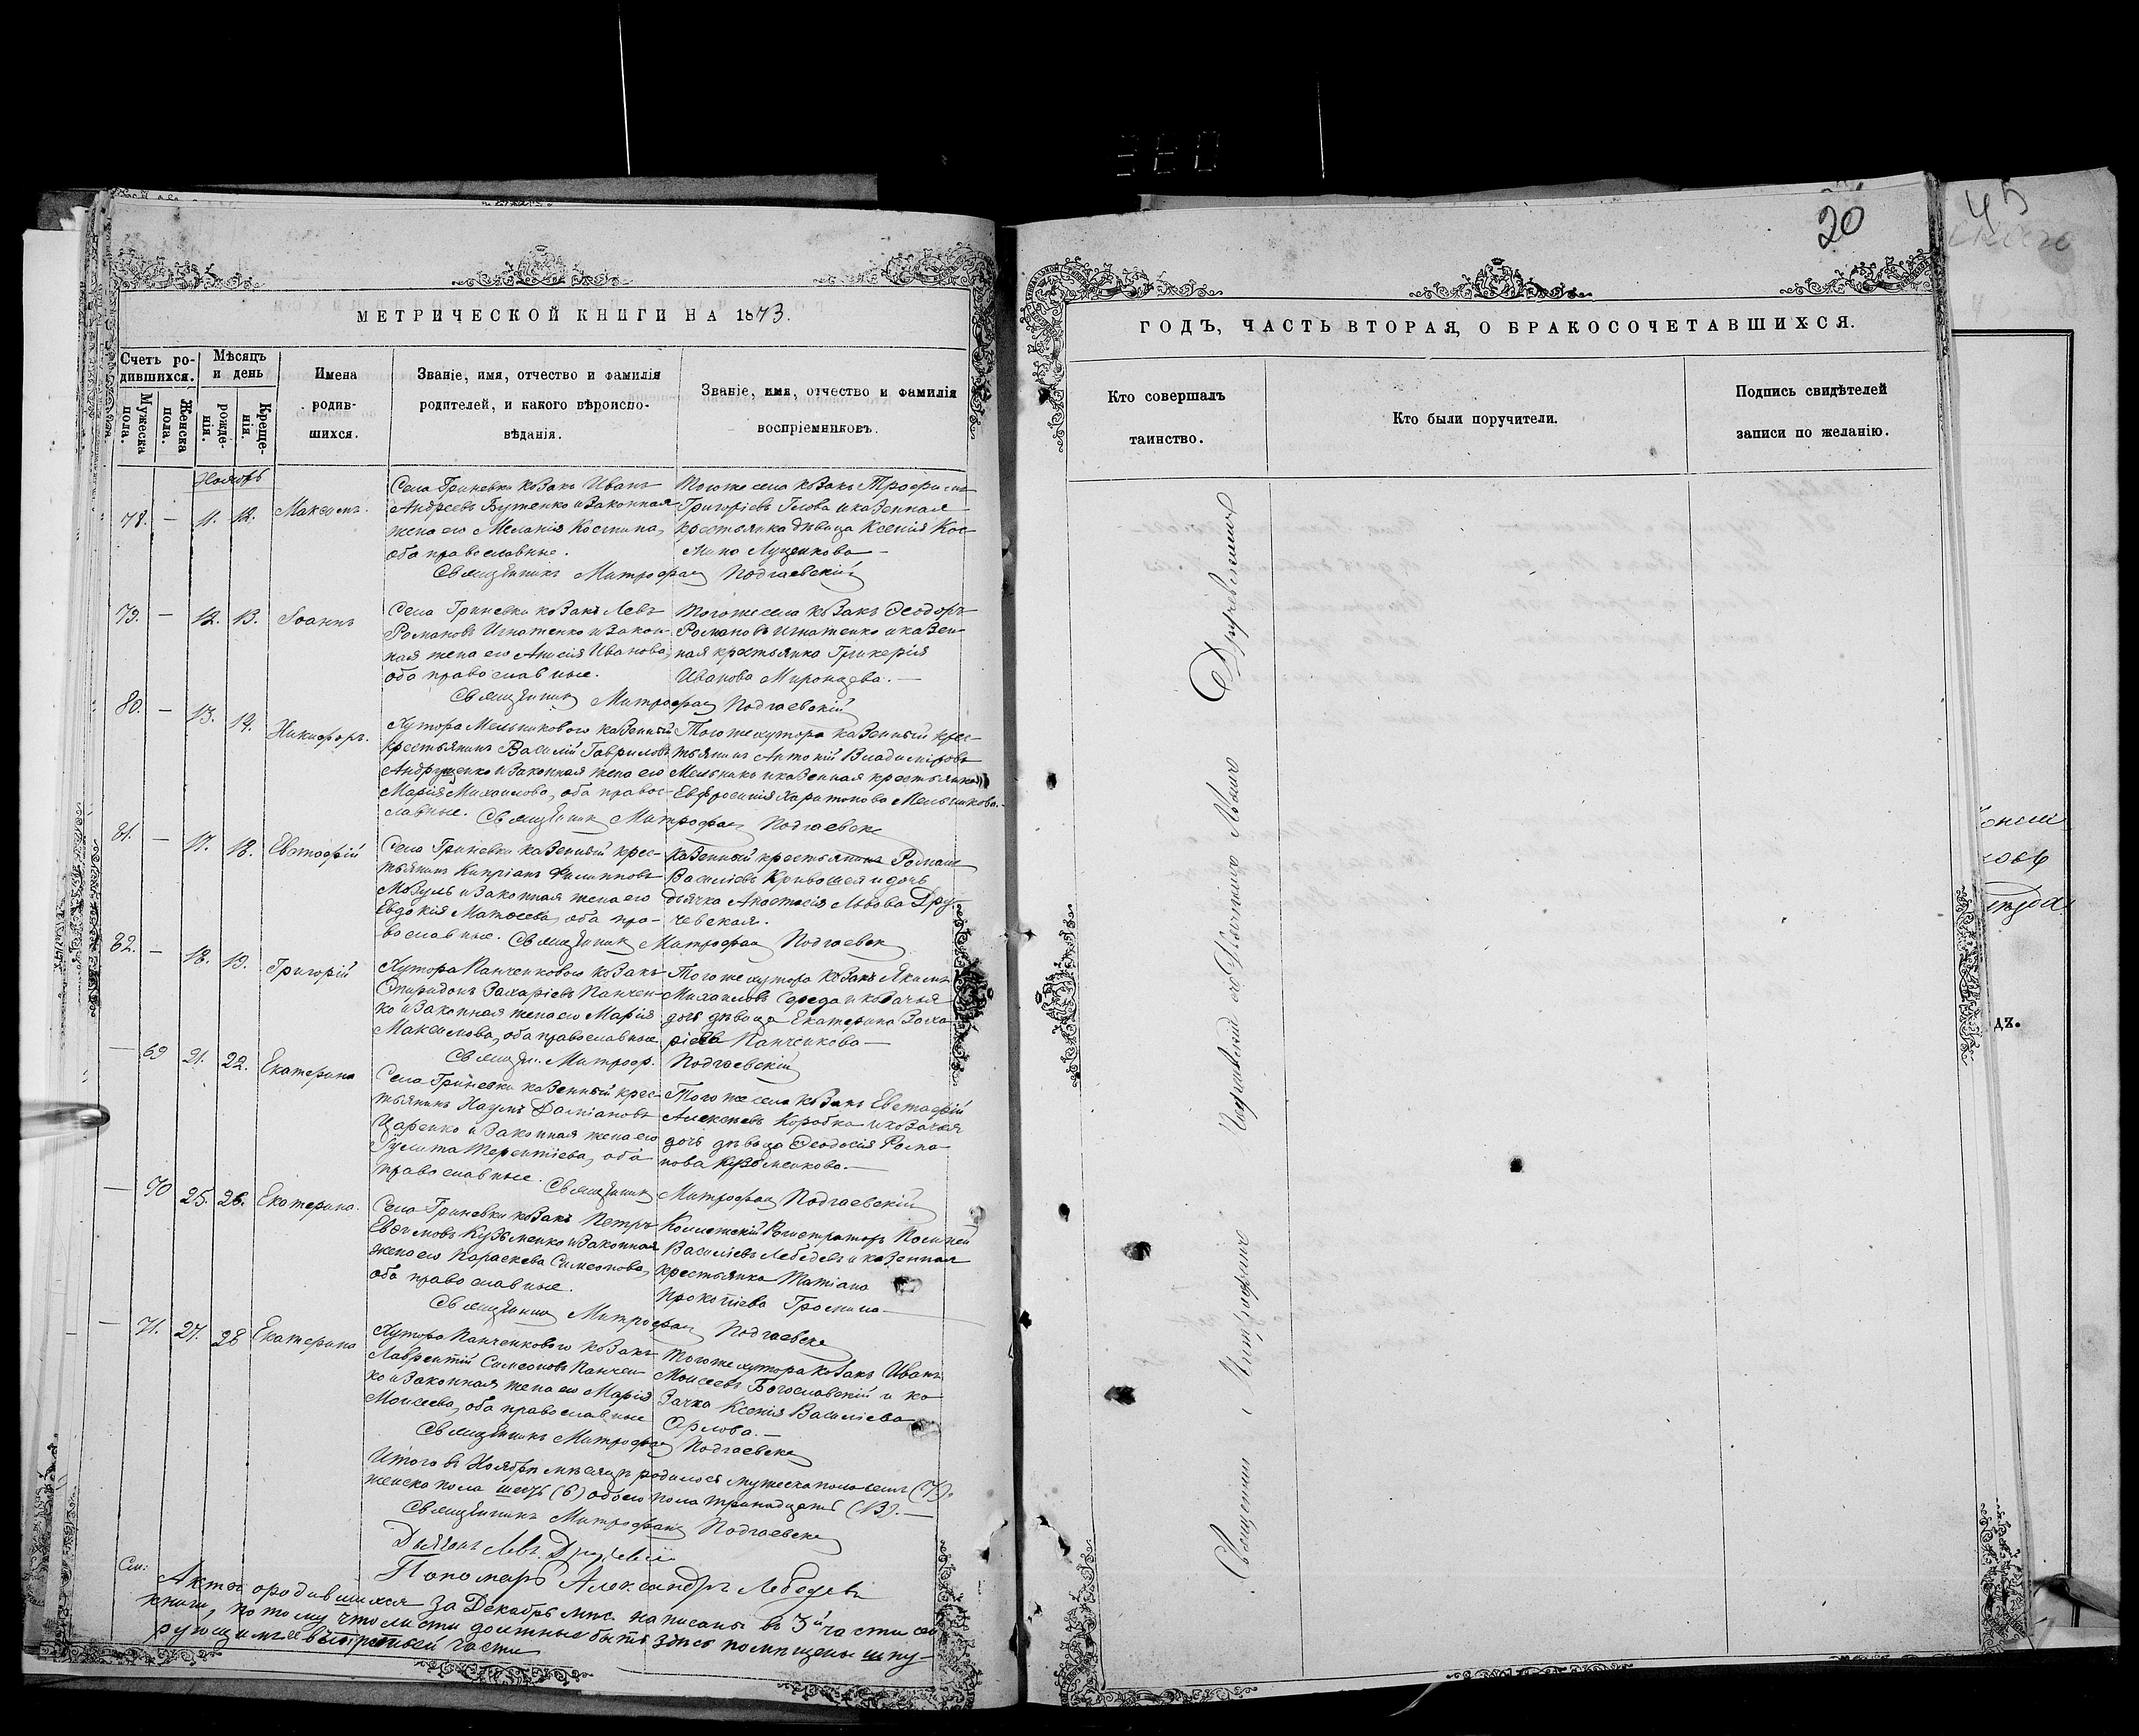 20
45
МЕТРИЧЕСКОЙ КНИГИ НА 1873.
Счетъ ро-
дившихся.
Мужеска
пола.
Женска
пола.
Мѣсяцъ
и день
рожде-
нія.
Креще-
нія.
Имена
родив-
шихся.
Званіе, имя, отчество и фамилія
родителей, и какого вѣроиспо-
вѣданія.
Званіе, имя, отчество и фамилія
воспріемниковъ.
Ноябрь
78. — 11. 12. Максимъ.
Села Гриневки козакъ Иванъ
Андреевъ Бутенко и законная
жена его Меланія Космина,
оба православные.
Тогоже села козакъ Трофимъ
Григоріевъ Глова и казенная
крестьянка дѣвица Ксенія Кос-
мина Луценкова —
Священникъ Митрофанъ Подгаевскій
79. — 12. 13. Іоаннъ
Села Гриневки козакъ Левъ
Романовъ Игнатенко и закон-
ная жена его Анисія Иванова,
оба православные.
Тогоже села козакъ Ѳеодоръ
Романовъ Игнатенко и казен-
ная крестьянка Гликерія
Иванова Миронцева. —
Священникъ Митрофанъ Подгаевскій
80. — 13. 14. Никифоръ.
Хутора Мельникового казенный
крестьянинъ Василій Гавриловъ
Андрущенко и законная жена его
Марія Михаилова, оба правос-
лавные.
Тогоже хутора казенный крес-
тьянинъ Антоній Владиміровъ
Мельникъ и казенная крестьянка
Евфросинія Харитонова Мельникова. —
Священникъ Митрофанъ Подгаевскі
81. — 17. 18. Евстафій
Села Гриневки казенный крес-
тьянинъ Кипріанъ Филипповъ
Мозуль и законная жена его
Евдокія Матѳеева, оба пра-
вославные.
казенный крестьянинъ Романъ
Василіевъ Кривошея и дочь
дьячка Анастасія Львова Дру-
чевская.
Священникъ Митрофанъ Подгаевск
82. — 18. 19. Григорій
Хутора Панченкового козакъ
Спиридонъ Захаріевъ Панчен-
ко и законная жена его Марія
Максимова, оба православные
Тогоже хутора козакъ Якимъ
Михаиловъ Середа и козачья
дочь дѣвица Екатерина Заха-
ріева Панченкова —
Священ. Митроф. Подгаевскій
— 69 21. 22. Екатерина
Села Гриневки казенный крес-
тьянинъ Наумъ Даміановъ
Царенко и законная жена его
Іулита Терентіева, оба
православные.
Того же села козакъ Евстафій
Алексѣевъ Коробка и козачья
дочь дѣвица Ѳеодосія Рома-
нова Кузьменкова. —
Священникъ Митрофанъ Подгаевскій
— 70 25. 26. Екатерина.
Села Гриневки козакъ Петръ
Евѳимовъ Кузьменко и законная
жена его Параскева Симеонова,
оба православные.
Коллежскій Регистраторъ
Василіевъ Лебедевъ и казенная
крестьянка Татіана
Прокопіева Громина —
Священникъ Митрофанъ Подгаевскі
— 71. 27. 28 Екатерина
Хутора Панченкового козакъ
Лаврентій Симеоновъ Панчен-
ко и законная жена его Марія
Моисеева, оба православные
Тогоже хутора козакъ Иванъ
Моисеевъ Богославскій и ко-
зачка Ксенія Василіева
Орлова. —
Священникъ Митрофанъ Подгаевскі
Итого въ Ноябрѣ мѣсяцѣ родилось мужеска пола семь (7),
женска пола шесть (6) обоего пола тринадцать (13). —
Священникъ Митрофанъ Подгаевскі
Дьячокъ Левъ
Пономарь Александръ Лебедевъ
См: Акты о родившихся за Декабрь мѣс. написаны въ 3й части сей
книги, потому что листы должные быть здѣсь помѣщены
третьей части
ГОДЪ, ЧАСТЬ ВТОРАЯ, О БРАКОСОЧЕТАВШИХСЯ.
Кто совершалъ
таинство.
Кто были поручители.
Подпись свидѣтелей
записи по желанію.
Священникъ Митрофанъ Подгаевскій
дъ.